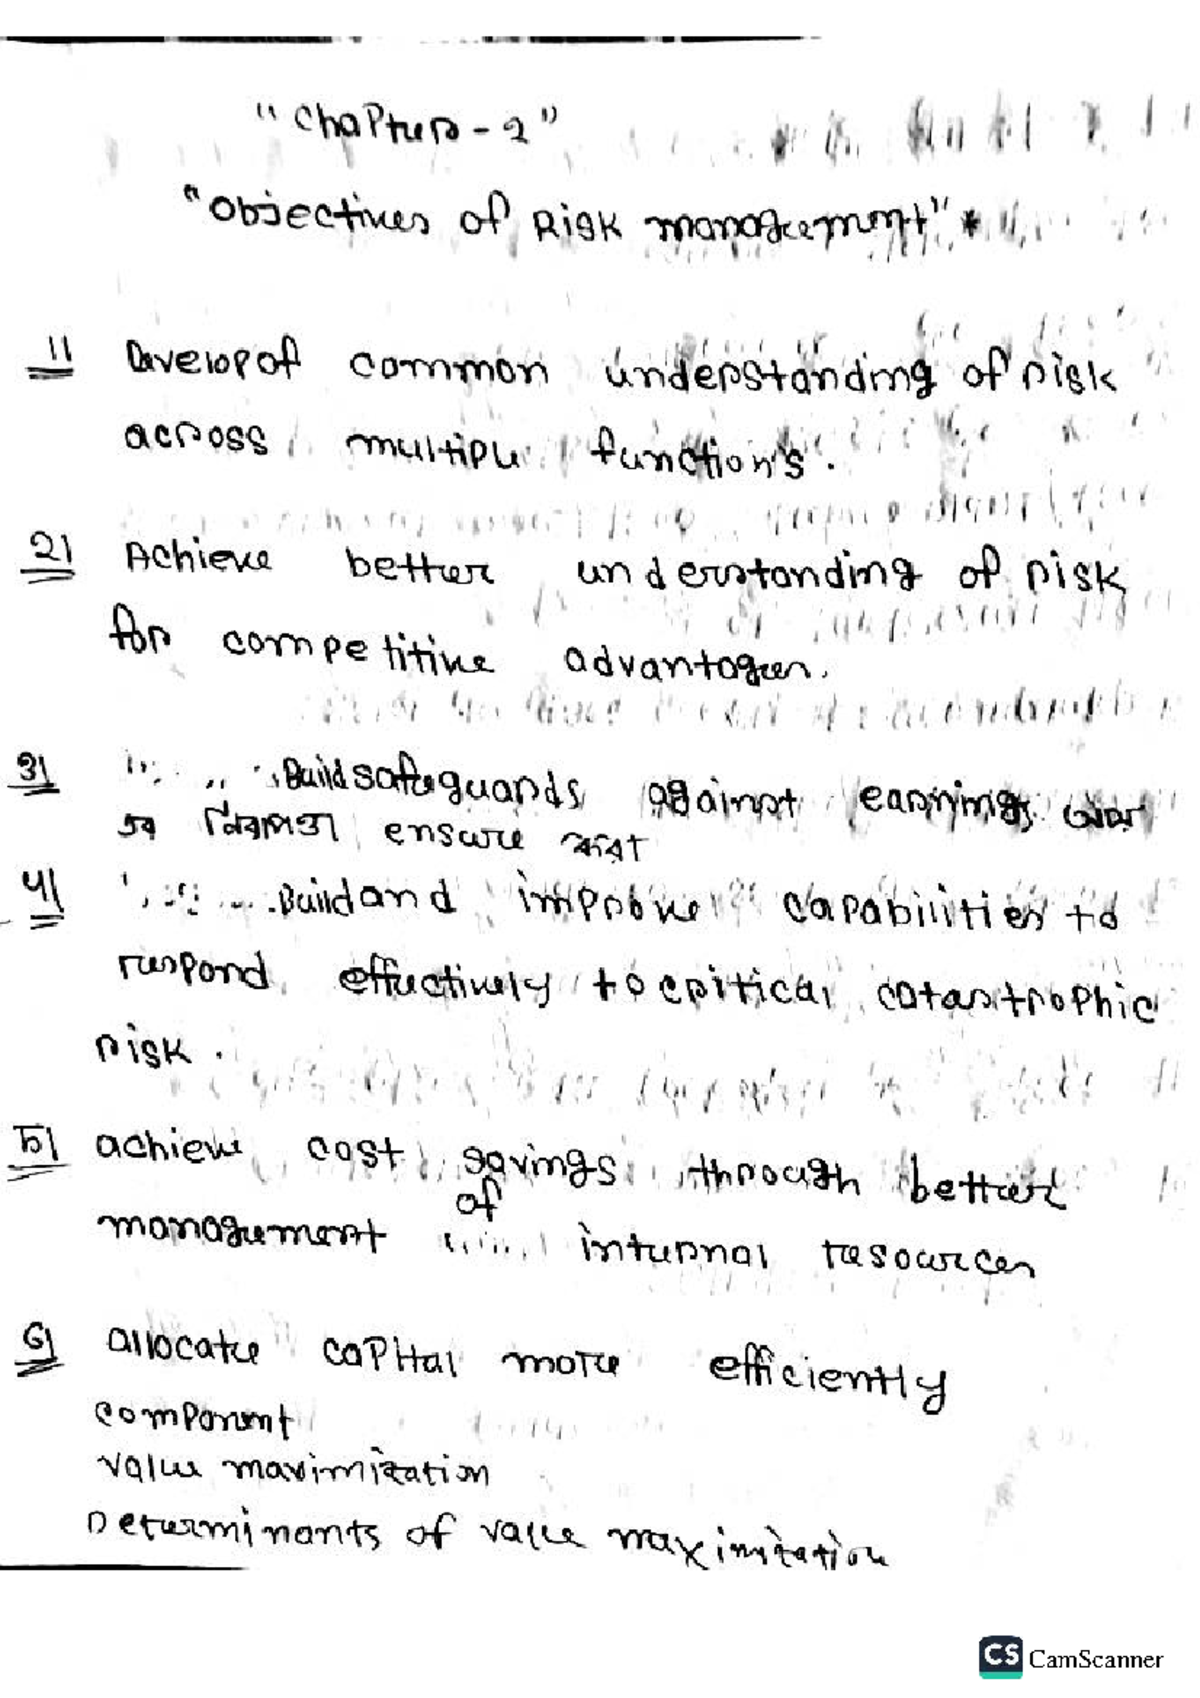 "Chapter-2"
"Objectives of Risk management" *
1। Develop of common understanding of risk
across multiple functions.
2। Achieve better understanding of risk
for competitive advantages.
3। Build safeguards against earnings
ensure করা
4। Build and improve capabilities to
respond effectively to critical catastrophic
risk.
5। achieve cost savings through better
management of internal resources
6। allocate capital more efficiently
component
value maximization
Determinants of value maximization
CS CamScanner